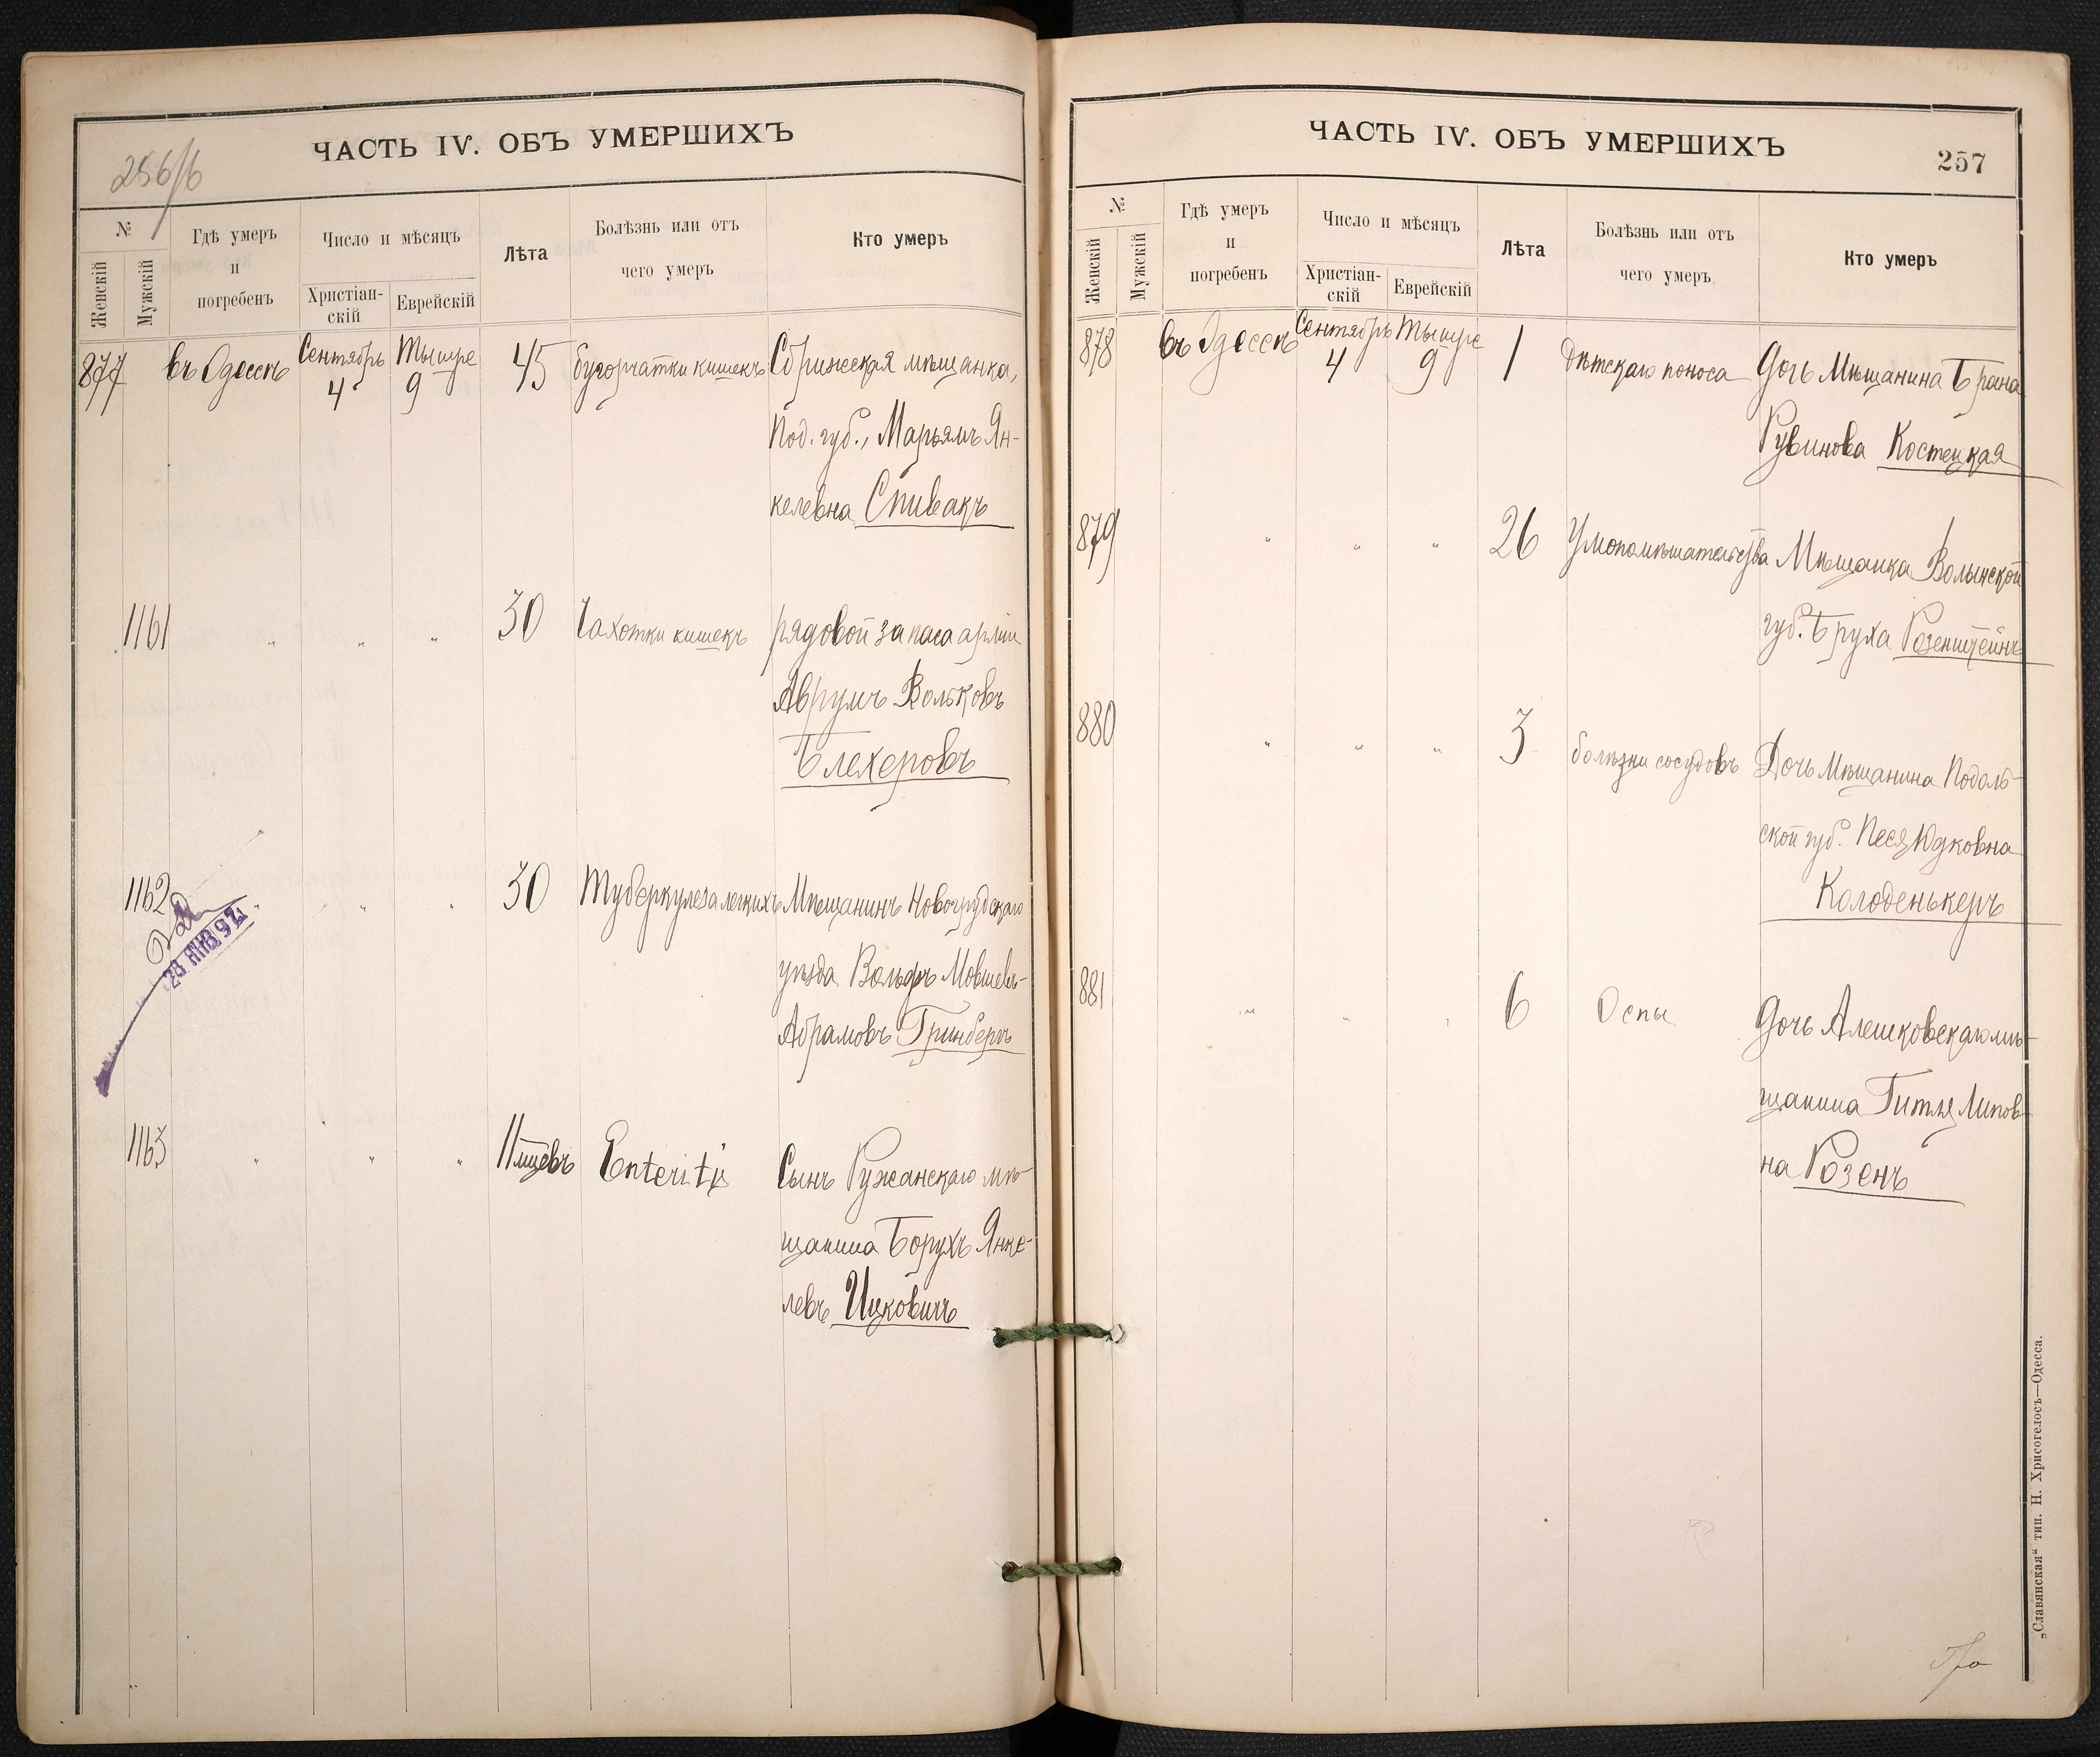 256/б
ЧАСТЬ IV. ОБЪ УМЕРШИХЪ
№
Женскій
Мужскій
Гдѣ умеръ
и
погребенъ
Число и мѣсяцъ
Христіан-
скій
Еврейскій
Лѣта
Болѣзнь или отъ
чего умеръ
Кто умеръ
877 въ Одессѣ Сентябрь 4 Тышре 9 45 бугорчатки кишекъ мѣщанка,
Под. губ., Марьямъ Ян-
келевна Спивакъ
1161 " " " 30 Чахотки кишекъ рядовой запаса арміи
Аврумъ Вольковъ
Блехеровъ
1162 " " " 30 Туберкулеза легкихъ Мѣщанинъ Новогрудскаго
уѣзда Вольфъ Мовшевъ-
Абрамовъ Гринбергъ
1163 " " " 11 мцевъ Enteritis Сынъ Ружанскаго мѣ-
щанина Борухъ Янке-
левъ Ицковичъ
ЧАСТЬ IV. ОБЪ УМЕРШИХЪ
257
№
Женскій
Мужскій
Гдѣ умеръ
и
погребенъ
Число и мѣсяцъ
Христіан-
скій
Еврейскій
Лѣта
Болѣзнь или отъ
чего умеръ
Кто умеръ
878 въ Одессѣ Сентябрь 4 Тышре 9 1 Дѣтскаго поноса Дочь Мѣщанина Брана
Рувинова Костецкая
879 " " " 26 Умопомѣшательства Мѣщанка Волынской
губ. Бруха Розенштейнъ
880 " " " 3 болѣзни сосудовъ Дочь Мѣщанина Подоль-
ской губ. Песя Юдковна
Колоденькеръ
881 " " " 6 Оспы Дочь Алешковскаго мѣ-
щанина Гитля Липов-
на Розенъ
„Славянская“ тип. Н. Хрисогелосъ—Одесса.